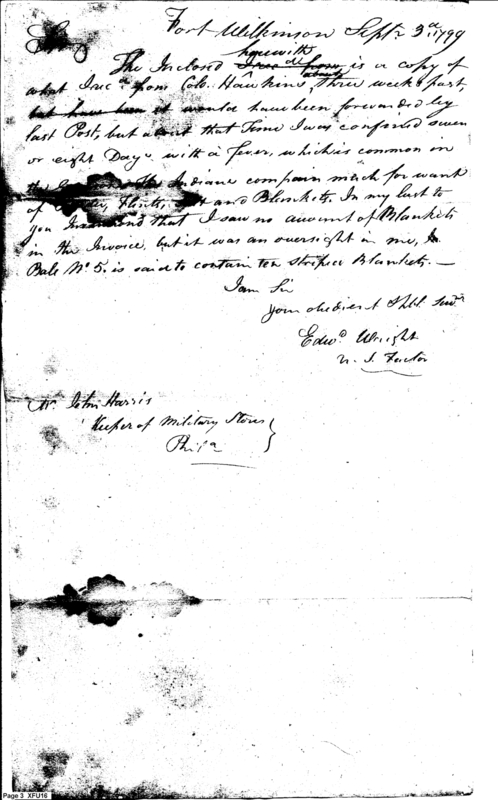 Fort Wilkinson Sept. 3d 1799
Sir,
The Inclosed herewith is a copy of
what I recd. from Colo. Hawkins about three weeks past,
but have been it would have been forwarded by
last Post, but about that Time I was confined seven
or eight Days with a fever, which is common on
the The Indians complain much for want
of Flints, and Blankets. In my last to
you I mentiond that I saw no amount of Blankets
in the Invoice, but it was an oversight in me, In
Bale No 5. is said to contain ten striped Blankets.—
I am Sir
your obedient Hbl. Servt.
Edwd. Wright
U. S. Factor
Mr. John Harris
Keeper of Military Stores
Phila
Page 3 XFU16